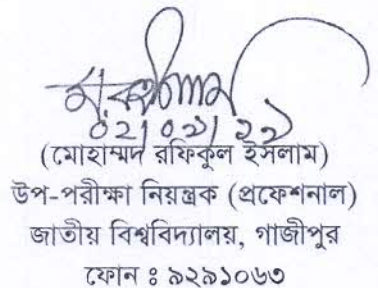 (মোহাম্মদ রফিকুল ইসলাম)
উপ-পরীক্ষা নিয়ন্ত্রক (প্রফেশনাল)
জাতীয় বিশ্ববিদ্যালয়, গাজীপুর
ফোন ঃ ৯২৯১০৬৩